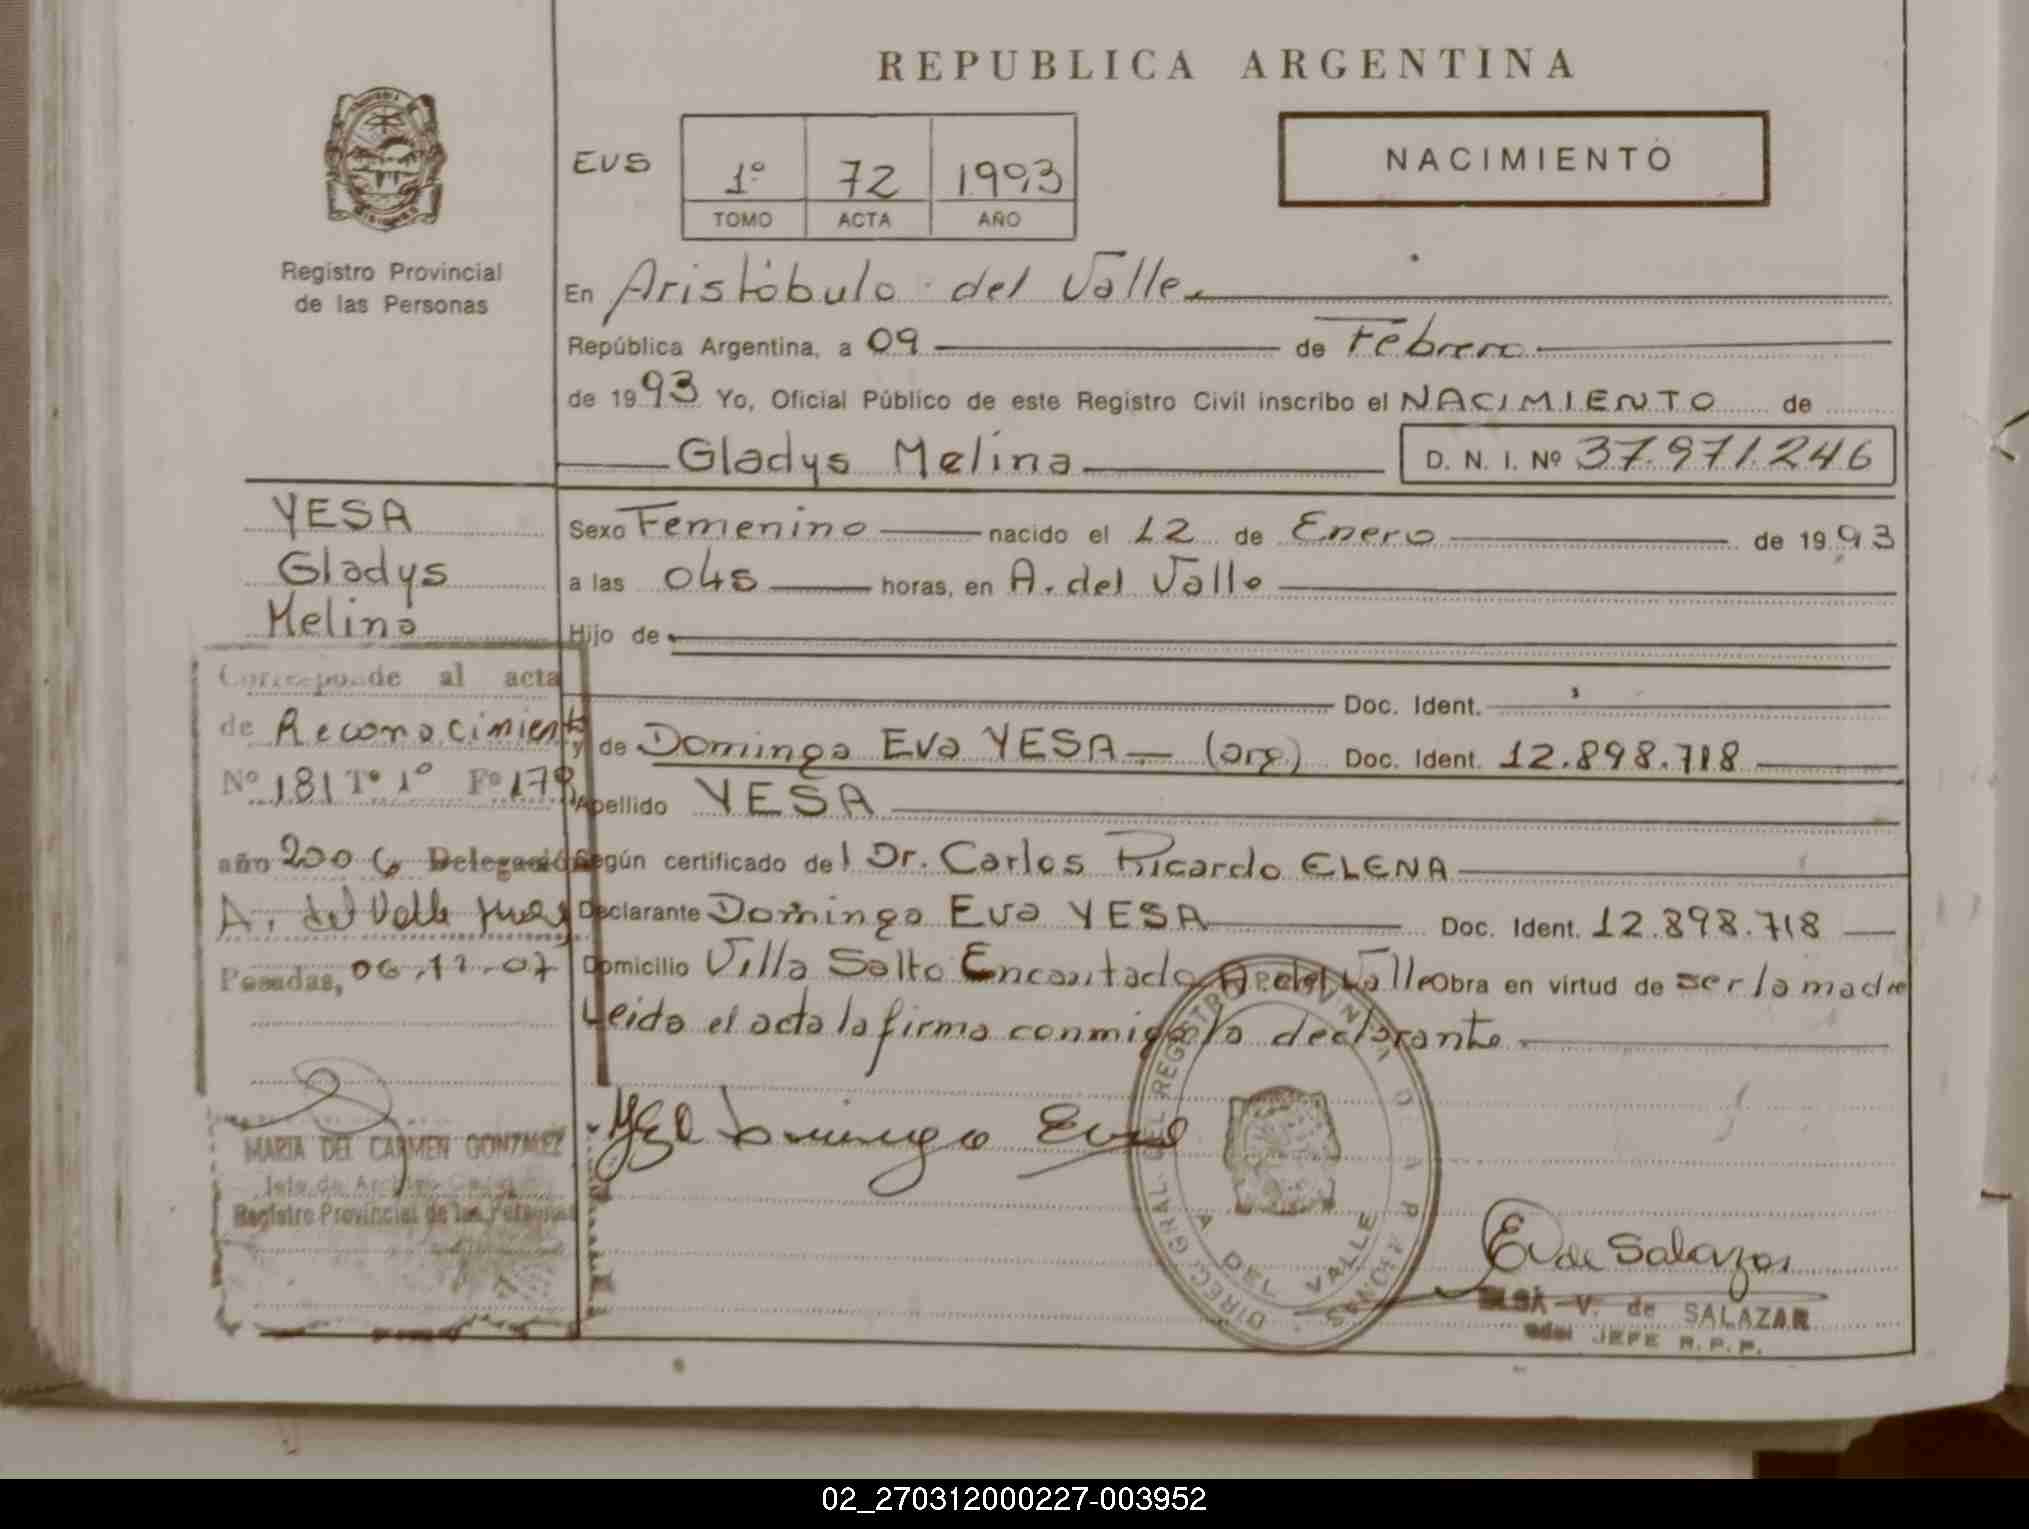 REPUBLICA ARGENTINA
EVS
1º 72 1993
TOMO ACTA AÑO
NACIMIENTO
Registro Provincial
de las Personas
En Aristóbulo del Valle
República Argentina, a 09 de Febrero
de 1993 Yo, Oficial Público de este Registro Civil inscribo el NACIMIENTO de
Gladys Melina D. N. I. Nº 37.971.246
YESA
Gladys
Melina
Sexo Femenino nacido el 12 de Enero de 1993
a las 04s horas, en A. del Valle
Hijo de
Doc. Ident.
y de Dominga Eva YESA (arg) Doc. Ident. 12.898.718
Apellido YESA
Según certificado del Dr. Carlos Ricardo ELENA
Declarante Dominga Eva YESA Doc. Ident. 12.898.718
Domicilio Villa Salto Encantado A. del Valle Obra en virtud de ser la madre
Leida el acta la firma conmigo la declarante
Corresponde al acta
de Reconocimient
Nº 181 Tº 1º Fº 178
año 2006 Delegación
A. del Valle
Posadas, 06.11.07
MARIA DEL CARMEN GONZALEZ
Jefe de Archivo
Registro Provincial de las Personas
Dominga Eva
DIREC. GRAL. DEL REGISTRO PROVINCIAL
A DEL VALLE
E V de Salazar
ELSA V. de SALAZAR
JEFE R. P. P.
02_270312000227-003952